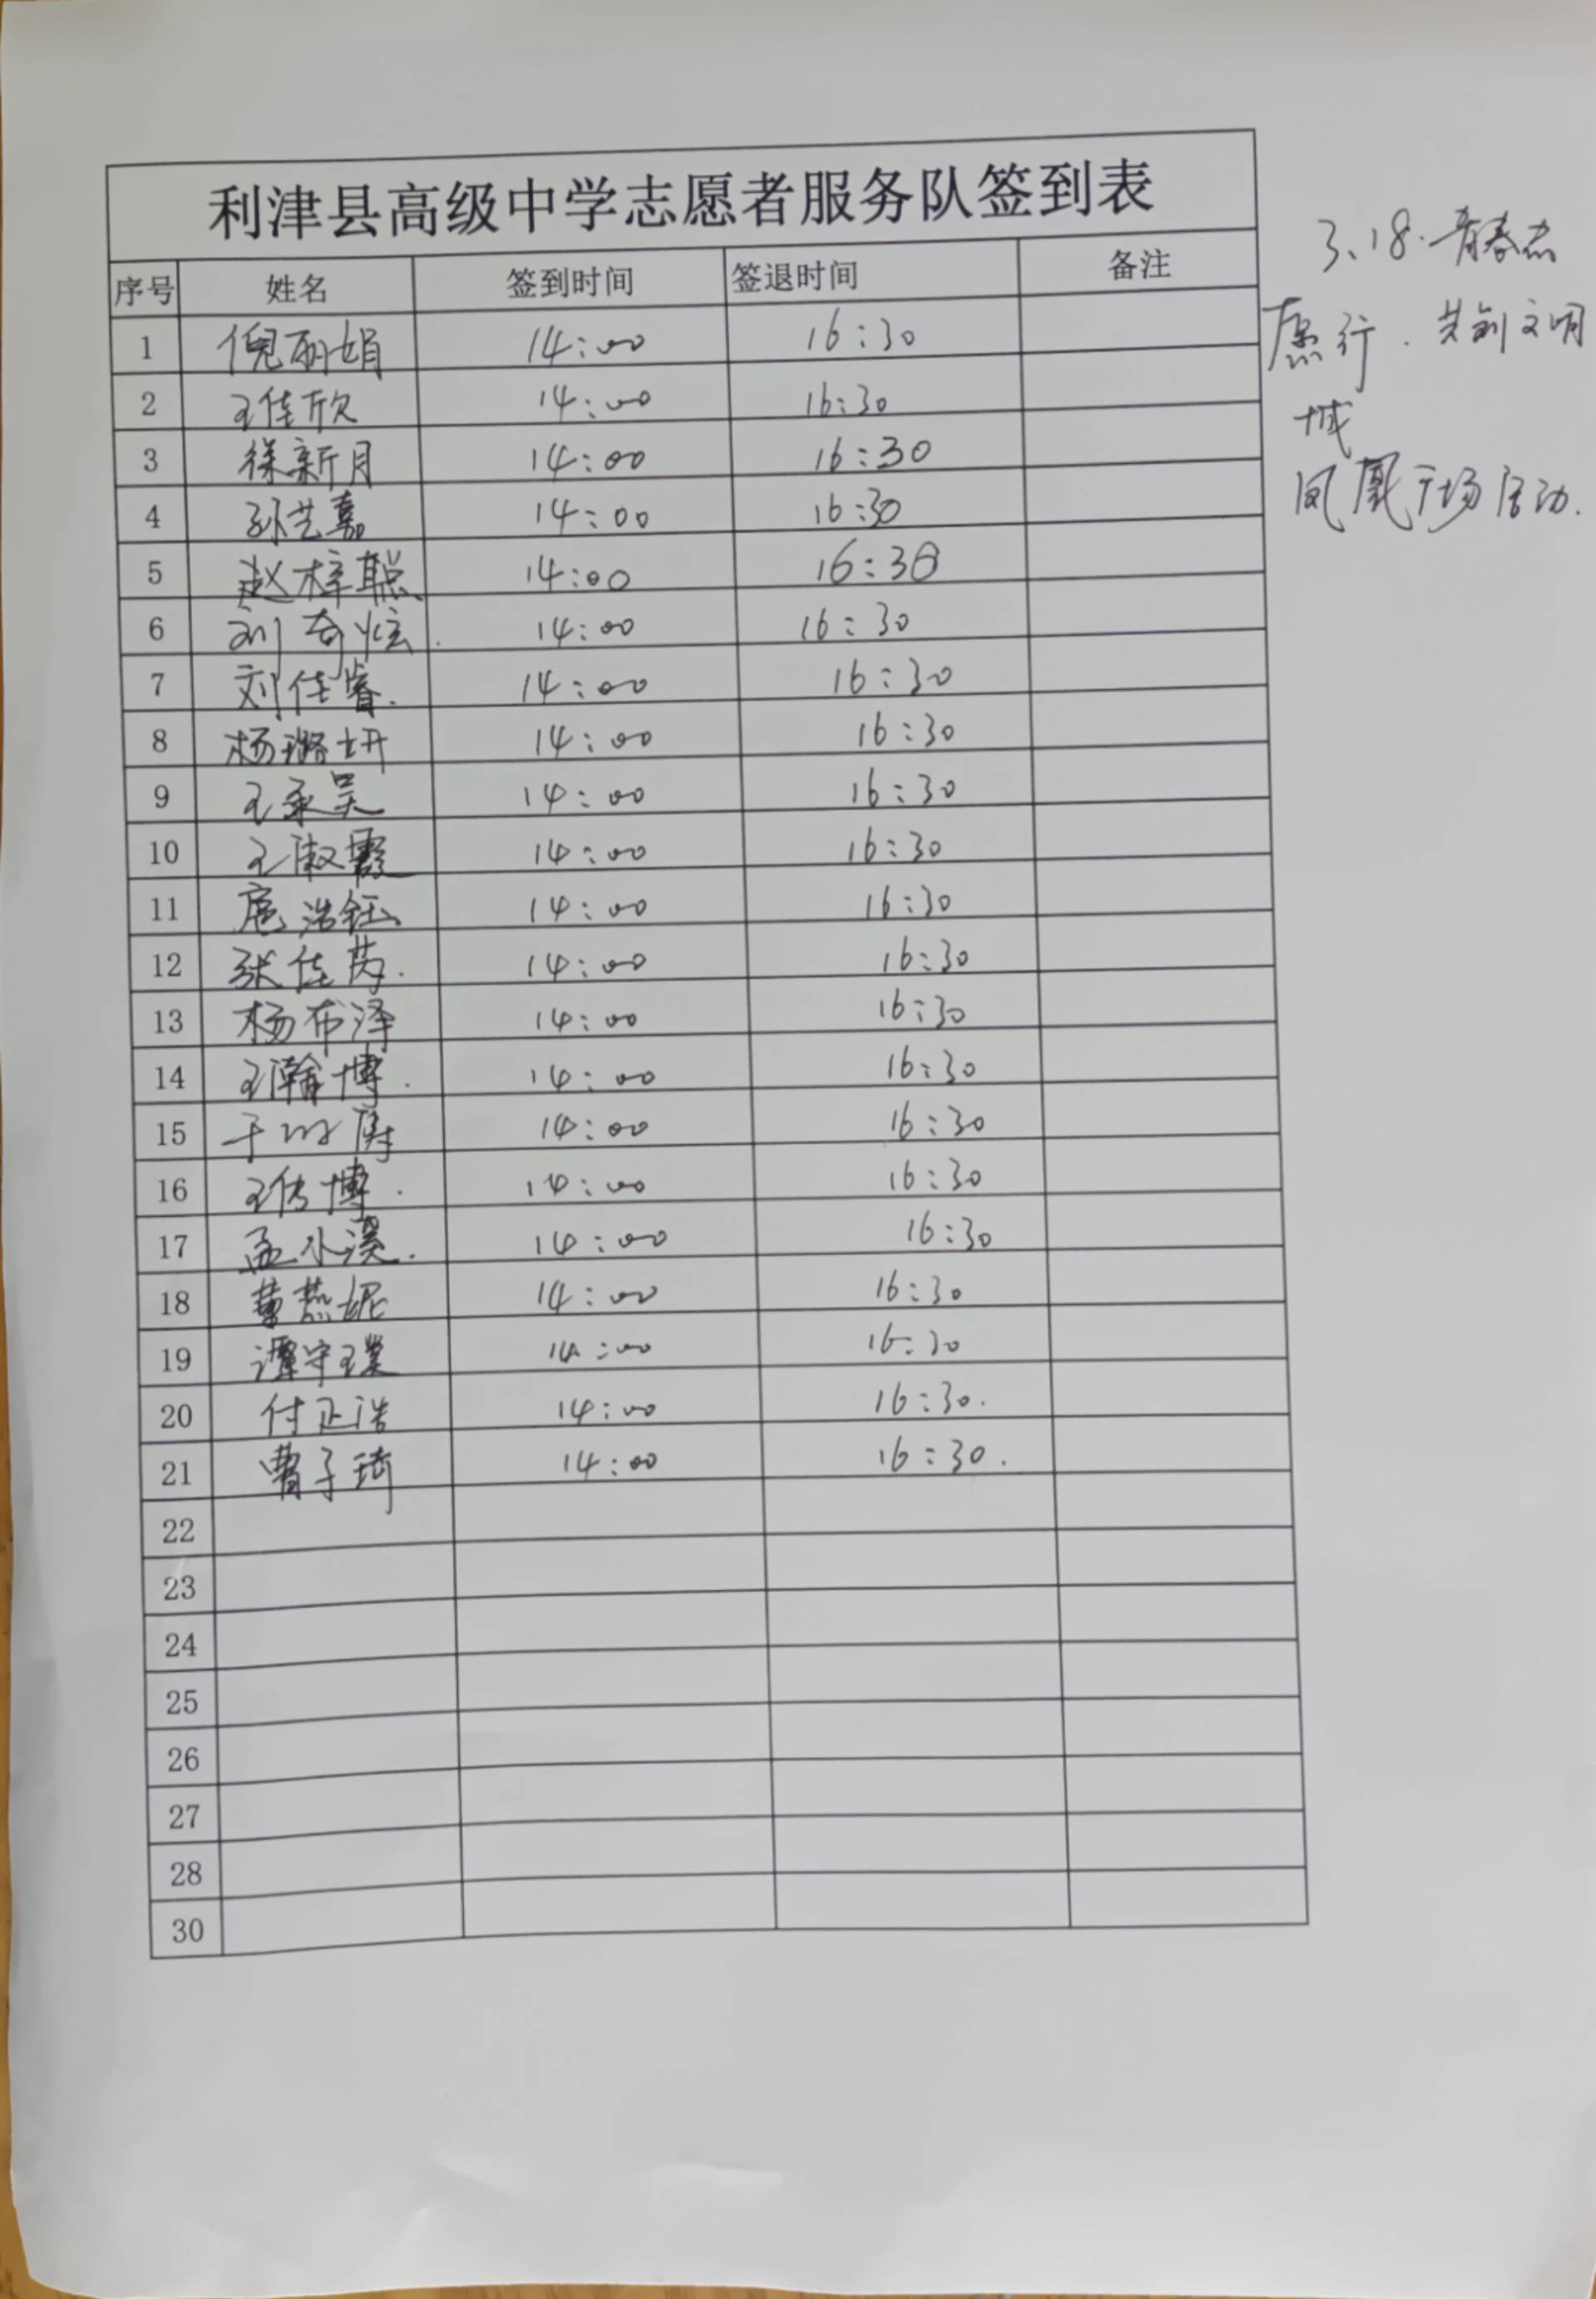 利津县高级中学志愿者服务队签到表
序号 姓名 签到时间 签退时间 备注
1 倪丽娟 14:00 16:30
2 王佳欣 14:00 16:30
3 徐新月 14:00 16:30
4 孙艺嘉 14:00 16:30
5 赵梓聪 14:00 16:30
6 刘奇炫 14:00 16:30
7 刘佳睿. 14:00 16:30
8 杨璐妍 14:00 16:30
9 王承昊 14:00 16:30
10 王淑霞 14:00 16:30
11 扈浩钰 14:00 16:30
12 张佳芮. 14:00 16:30
13 杨布泽 14:00 16:30
14 王瀚博. 14:00 16:30
15 14:00 16:30
16 王传博. 14:00 16:30
17 孟小溪. 14:00 16:30
18 黄燕妮 14:00 16:30
19 谭守璞 14:00 16:30
20 付正浩 14:00 16:30.
21 曹子琦 14:00 16:30.
22
23
24
25
26
27
28
30
3、18.青春志
愿行.共创文明
城
凤凰广场活动.